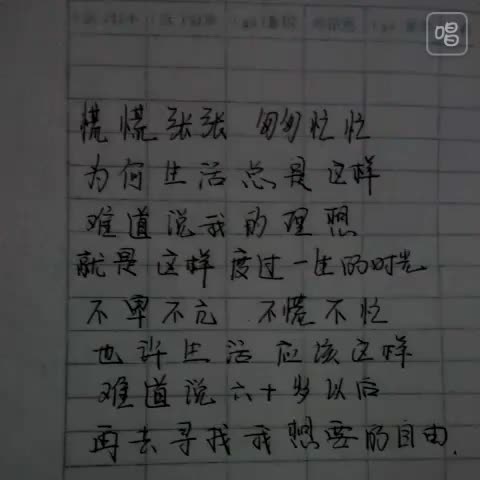 唱
慌慌张张 匆匆忙忙
为何生活总是这样
难道说我的理想
就是这样度过一生的时光
不卑不亢 不慌不忙
也许生活应该这样
难道说六十岁以后
再去寻找我想要的自由.